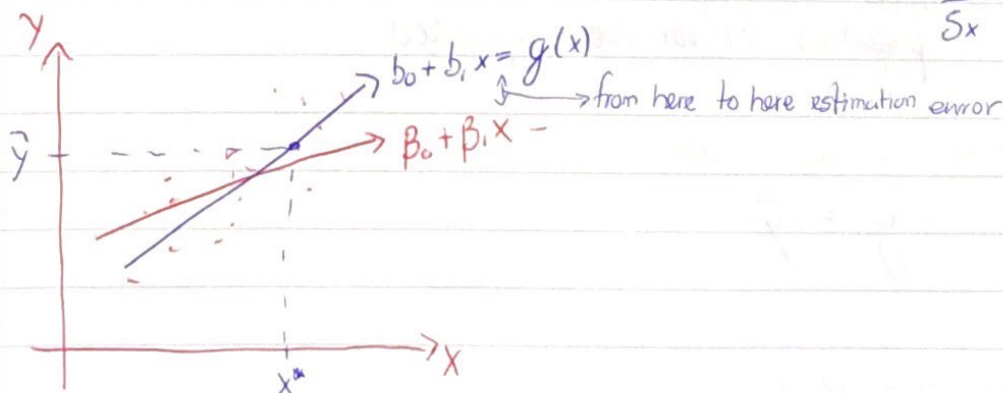 Sx
y
b₀ + b₁ x = g(x)
from here to here estimation error
β₀ + β₁ x
ŷ
x
x*